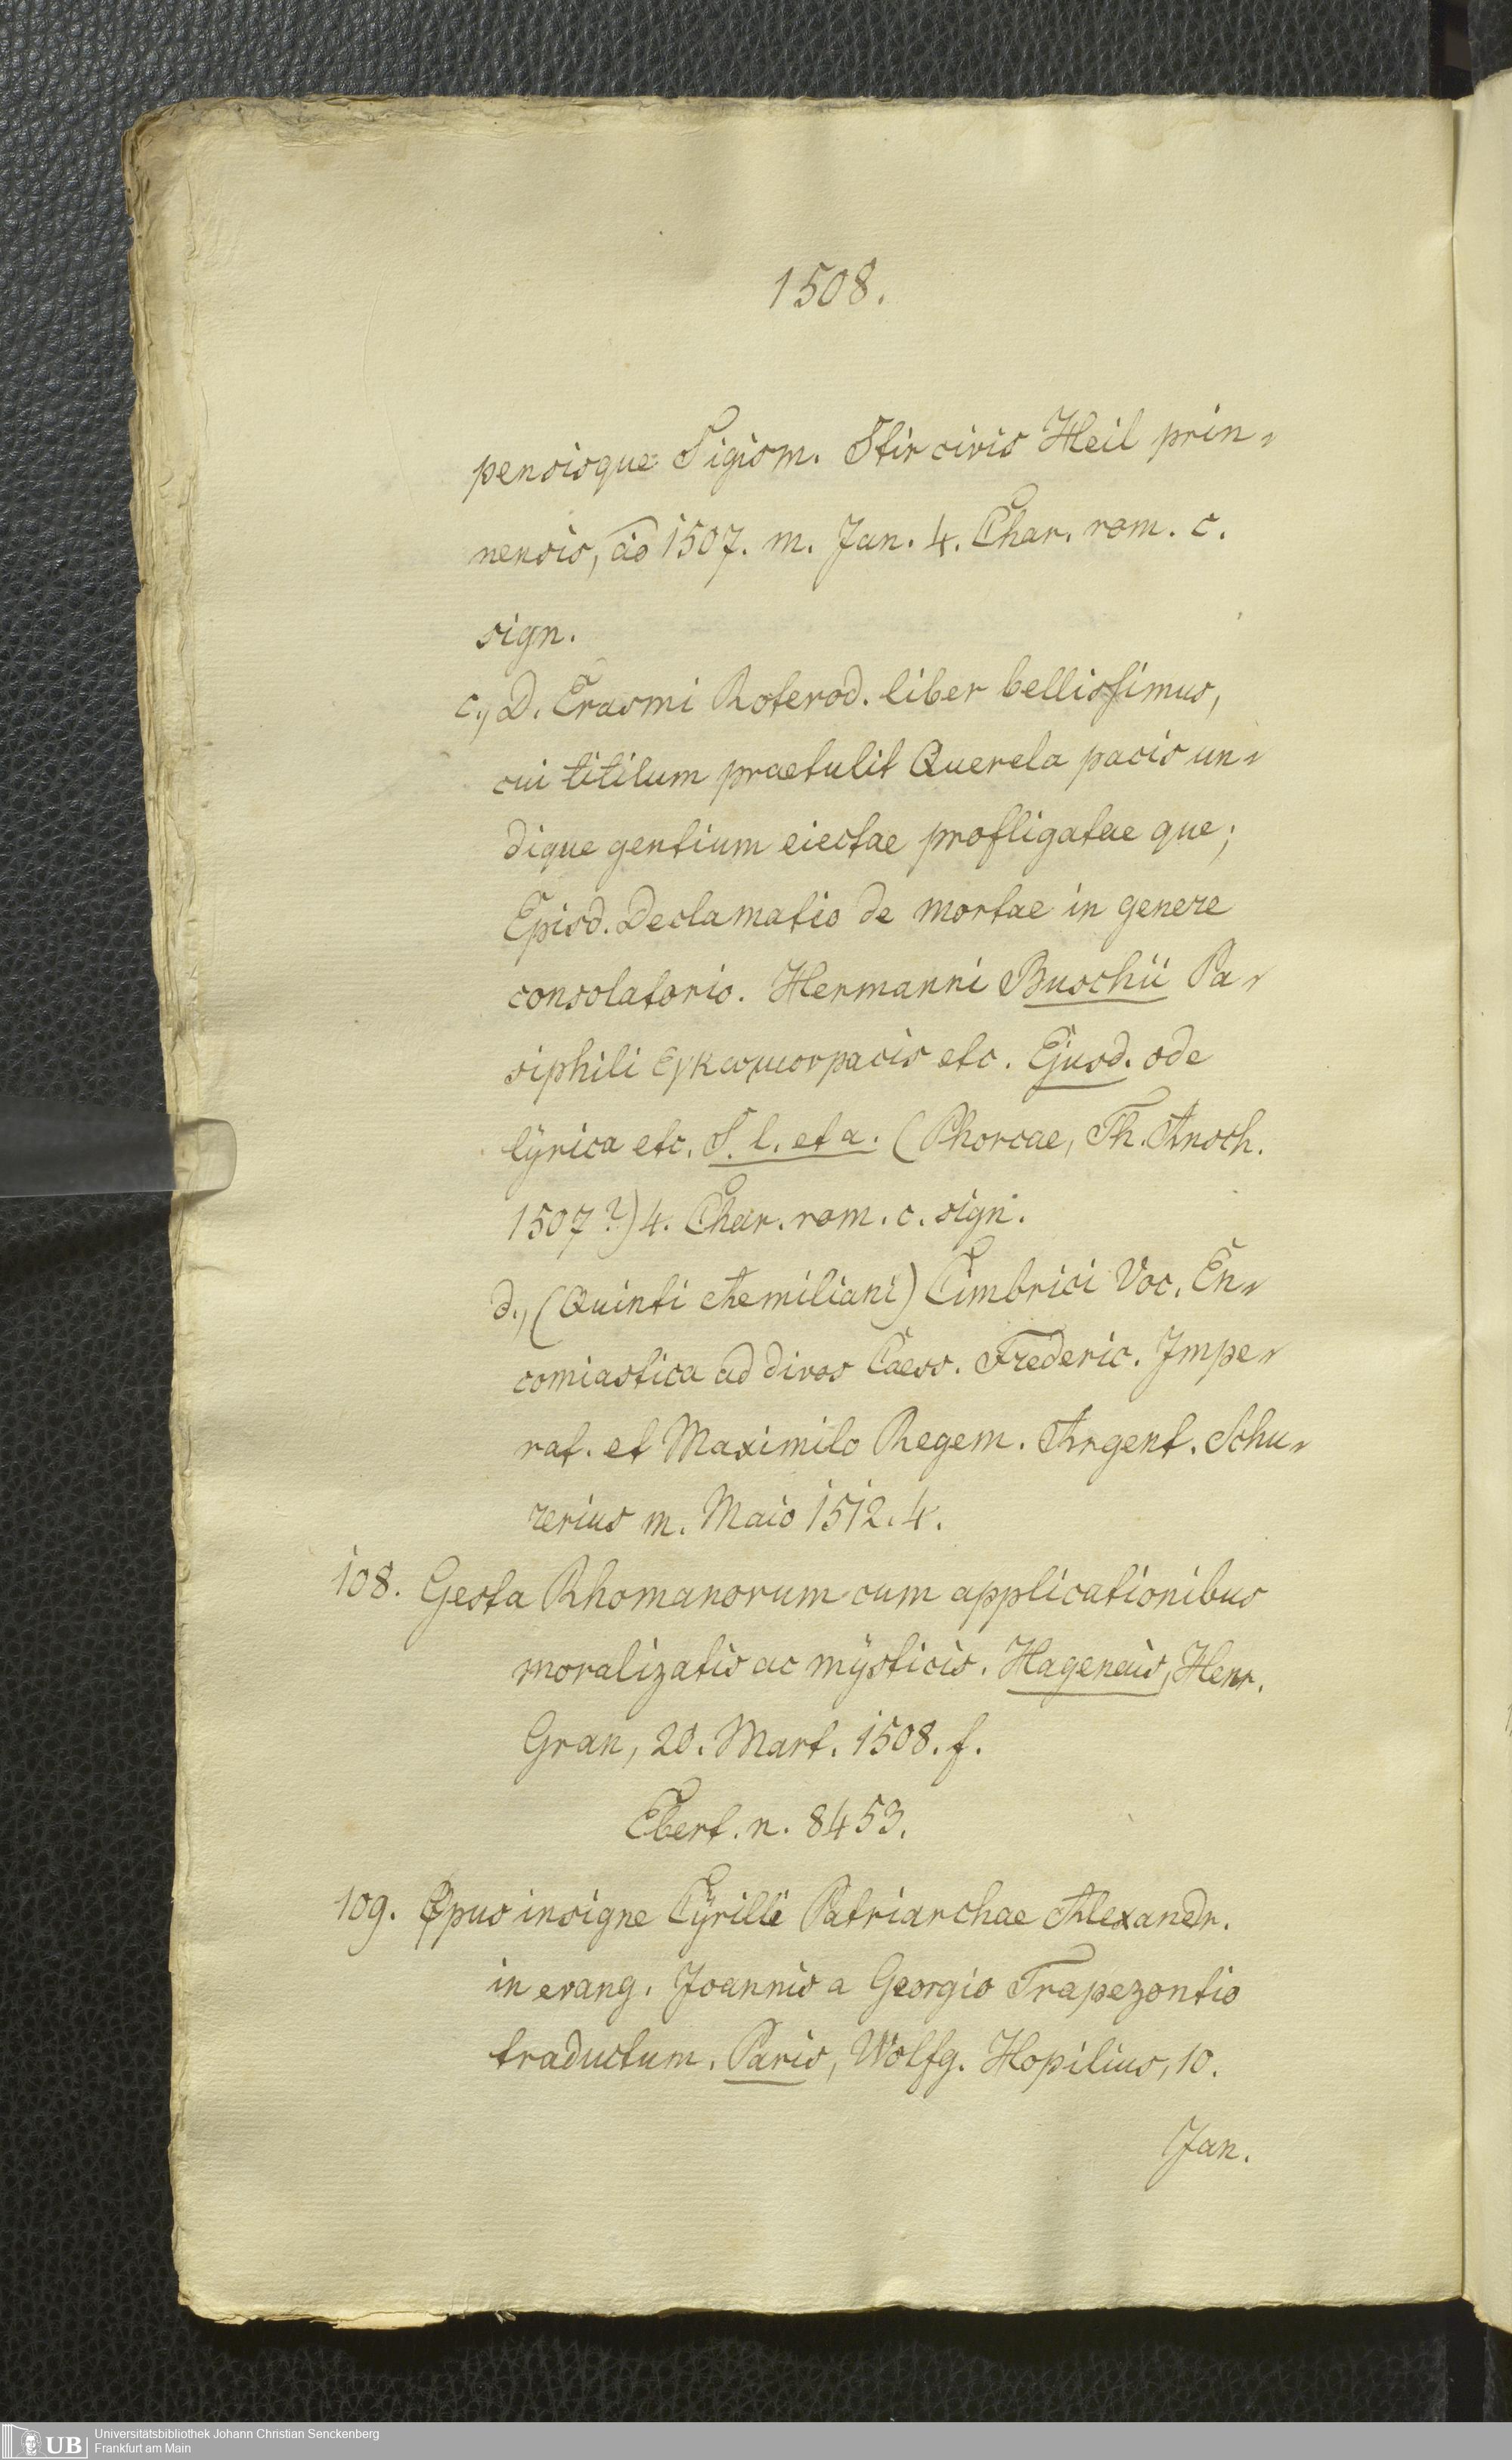 1508.
pensisque Sigism. Stir civis Heil prin-
nensis, ao 1507. m. Jan. 4. Char. rom. c.
sign.
c., D. Erasmi Roterod. liber bellissimus,
cui titilum praetulit Querela pacis un-
dique gentium eiectae profligatae que;
Episd. Declamatio de mortae in genere
consolatorio. Hermanni Buschii Pa-
siphili εγκωμιονpacis etc. Ejusd. ode
lÿrica etc. S. l. et a. (Phorcae, Th. Ansh.
1507?) 4. Char. rom. c. sign.
d., (Quinti Aemiliani) Cimbrici Voc. En-
comiastica ad divos Caess. Frederic. Impe-
rat. et Maximilo Regem. Argent. Schu-
rerius m. Maio 1512. 4.
108. Gesta Rhomanorum cum applicationibus
moralizatis ac mÿsticis. Hagenau, Henr.
Gran, 20. Mart. 1508. f.
Ebert. n. 8453.
109. Opus insigne Cÿrilli Patriarchae Alexandr.
in evang. Joannis a Georgio Trapezontio
traductum. Paris, Wolfg. Hopilius, 10.
Jan.
UB
Universitätsbibliothek Johann Christian Senckenberg
Frankfurt am Main